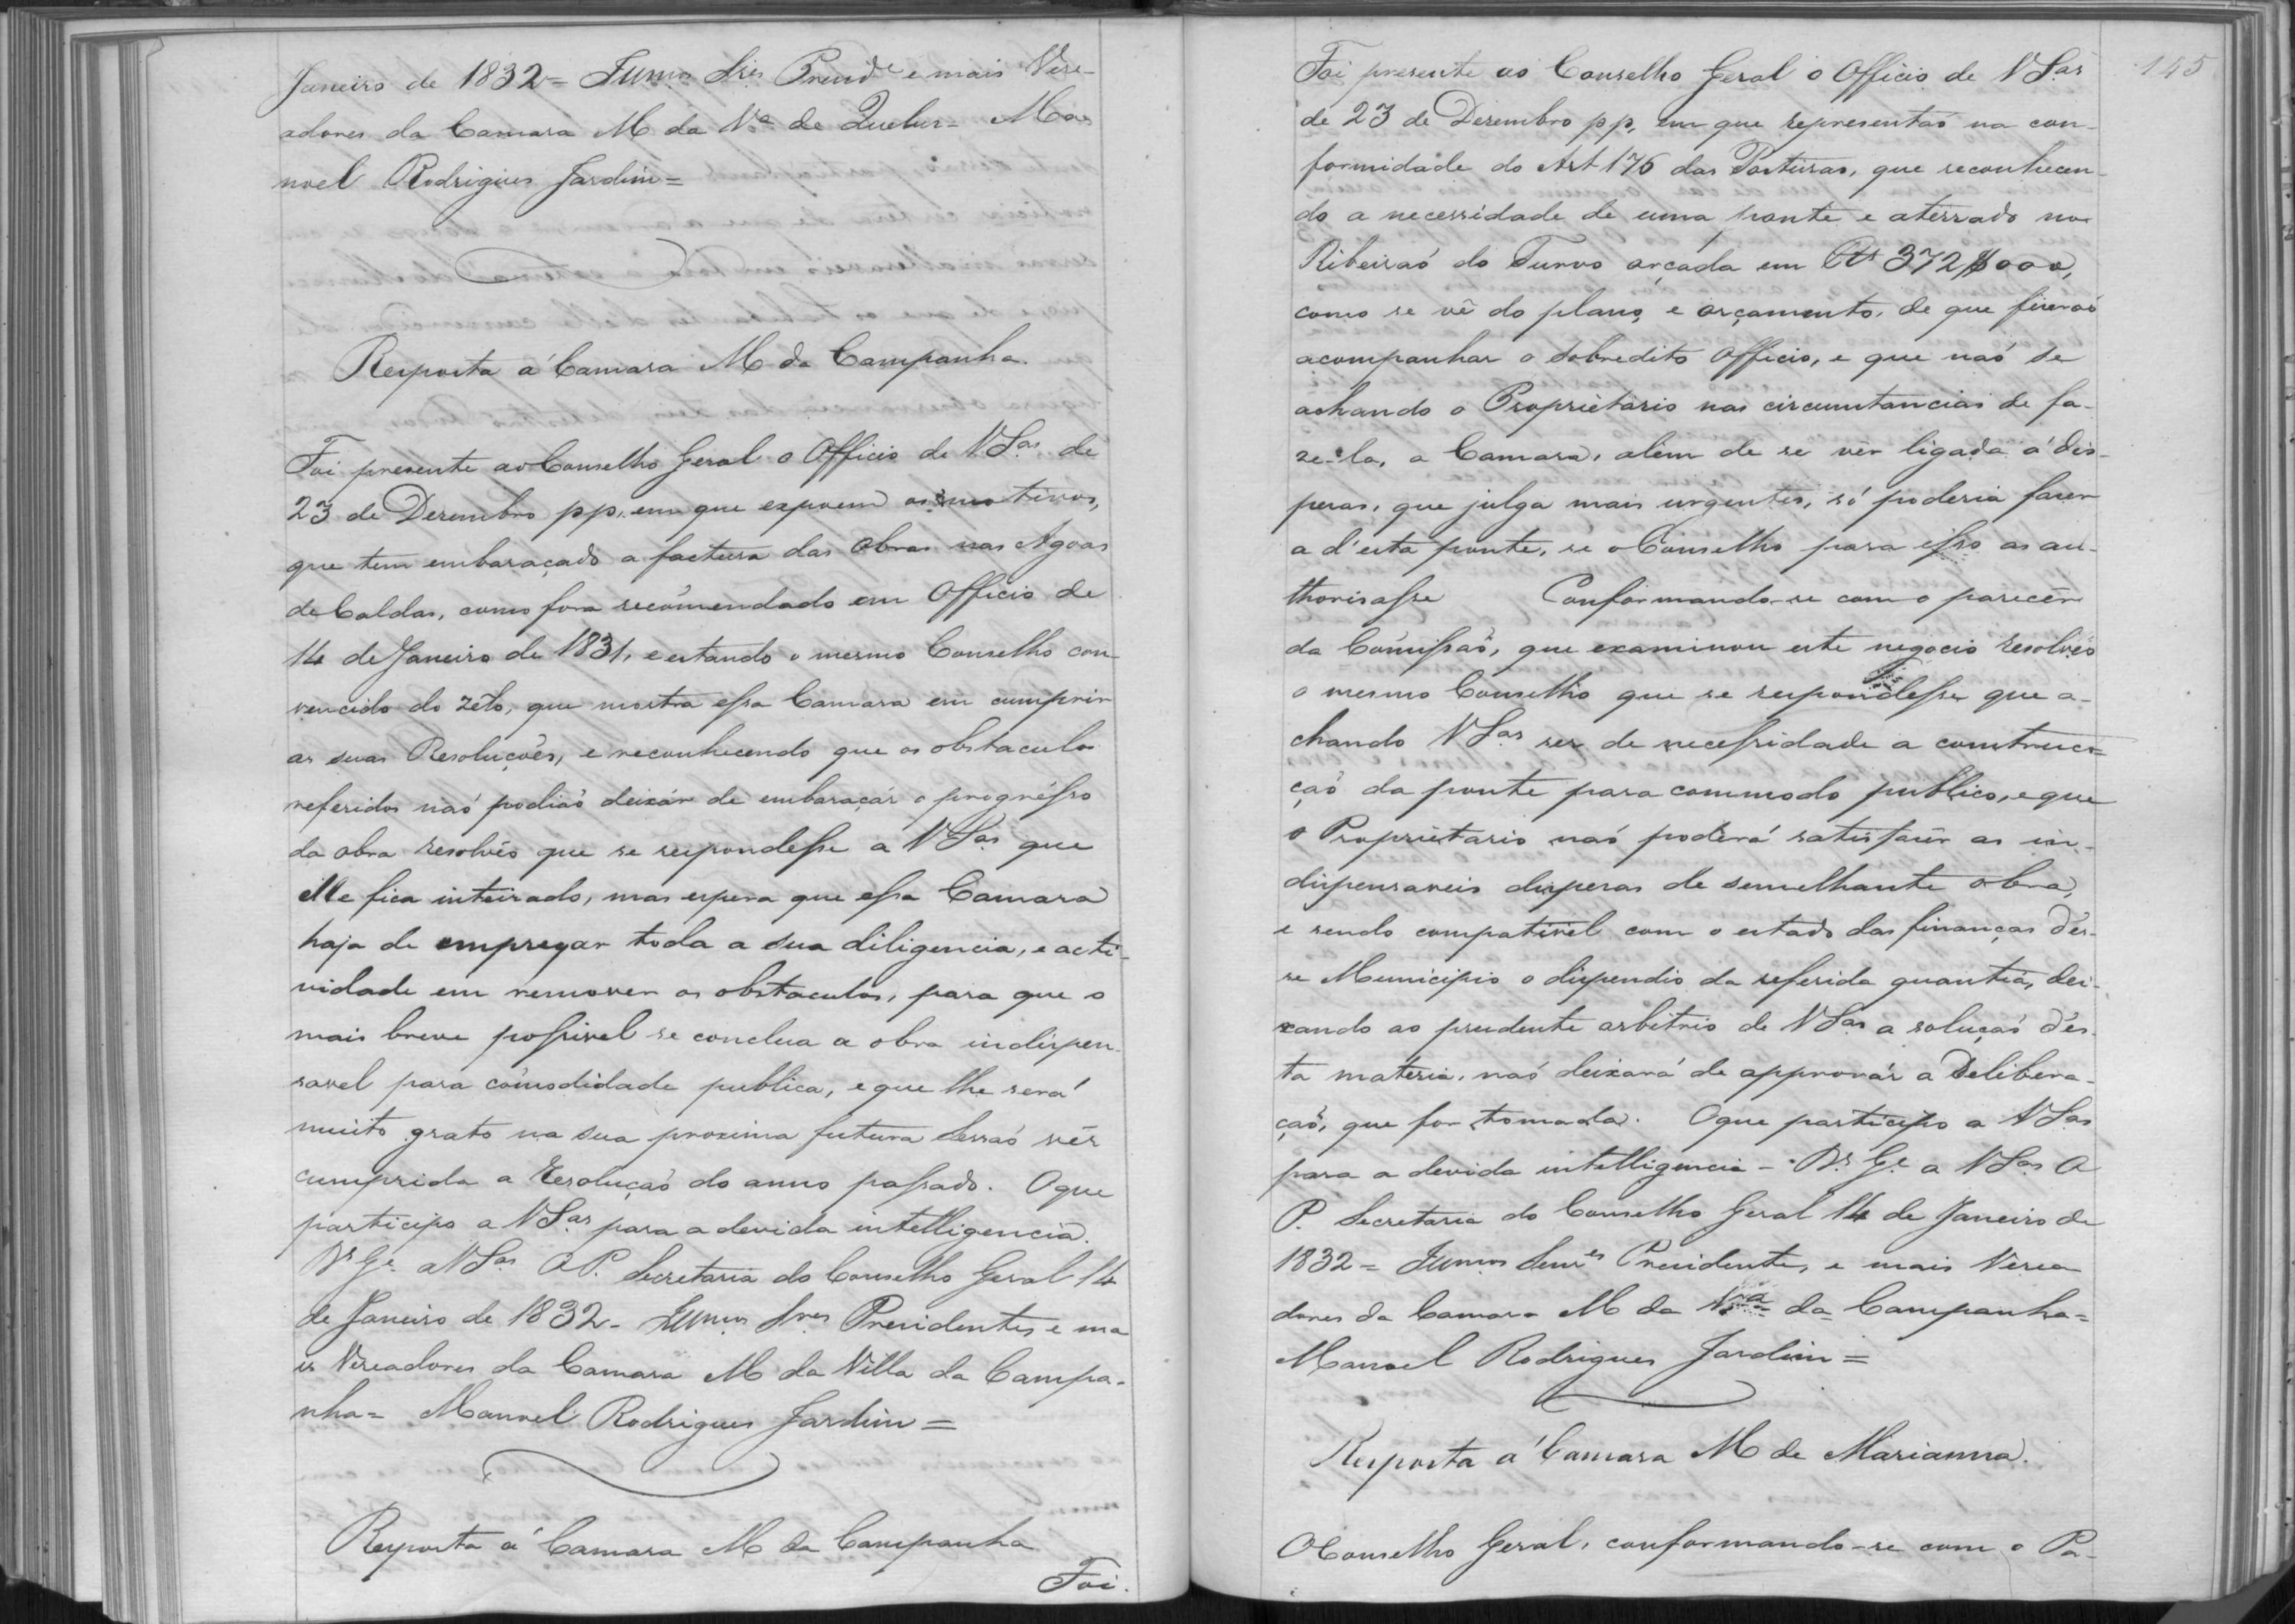 Janeiro de 1832 = Illmos Sres Presidte e mais Vere-
adores da Camara M da Va de Queluz = Ma
noel Rodrigues Jardim =
Resposta á Camara M da Campanha.
Foi presente ao Conselho Geral o Officio de VSas de
23 de Dezembro pp. em que expoem os motivos,
que tem embaraçado a factura das obras nas Agoas
de Caldas, como fora recómendado em Officio de
14 de Janeiro de 1831, e estando o mesmo Conselho con-
vencido do zelo, que mostra essa Camara em cumprir
as suas Resoluções, e reconhecendo que os obstaculos
referidos naó podiaó deixár de embaraçár o progrésso
da obra resolvêo que se respondesse a VSas que
elle fica inteirado, mas espera que essa Camara
haja de empregar toda a sua diligencia, e acti-
vidade em remover os obstaculos, para que o
mais breve possivel se conclua a obra indispen-
savel para cómodidade publica, e que lhe será
muito grato na sua proxima futura Sessaó vêr
cumprida a Resoluçaó do anno passado. O que
participo a VSas para a devida intelligencia.
Ds Ge a VSas O.P. Secretaria do Conselho Geral 14
de Janeiro de 1832 - Illmos Sres Presidentes e ma
is Vereadores da Camara M da Villa da Campa-
nha = Manoel Rodrigues Jardim =
Resposta á Camara M da Campanha
Foi.
145
Foi presente ao Conselho Geral o Officio de VSas
de 23 de Dezembro pp, em que representaó na con-
formidade do Art 176 das Posturas, que reconhecen-
do a necessidade de uma ponte e aterrado no
Ribeiraó do Turvo orçada em Rs 372$000,
como se vê do plano, e orçamento, de que fizeraó
acompanhar o sobredito Officio, e que naó se
achando o Proprietario nas circumstancias de fa-
ze-la, a Camara, alem de se vêr ligada á des-
pezas, que julga mais urgentes, só poderia fazer
a d'esta ponte, se o Conselho para isso as au-
thorisasse Conformando-se com o parecêr
da Cómissaó, que examinou este negocio resolvêo
o mesmo Conselho que se respondesse que a-
chando VSas ser de necessidade a construc-
çaó da ponte para commodo publico, e que
o Proprietario naó poderá satisfazêr as in-
dispensaveis despezas de semelhante obra,
e sendo compativel com o estado das finanças d'es-
se Municipio o dispendio da referida quantia, dei-
xando ao prudente arbitrio de VSas a soluçaó d'es-
ta materia, naó deixará de approvár a Delibera-
çaó, que for tomada. O que participo a VSas
para a devida intelligencia - Ds Ge a VSas O
P. Secretaria do Conselho Geral 14 de Janeiro de
1832 = Illmos Senres Presidente, e mais Verea
dores da Camara M da Va da Campanha =
Manoel Rodrigues Jardim =
Resposta á Camara M de Marianna.
O Conselho Geral, conformando-se com o Pa-